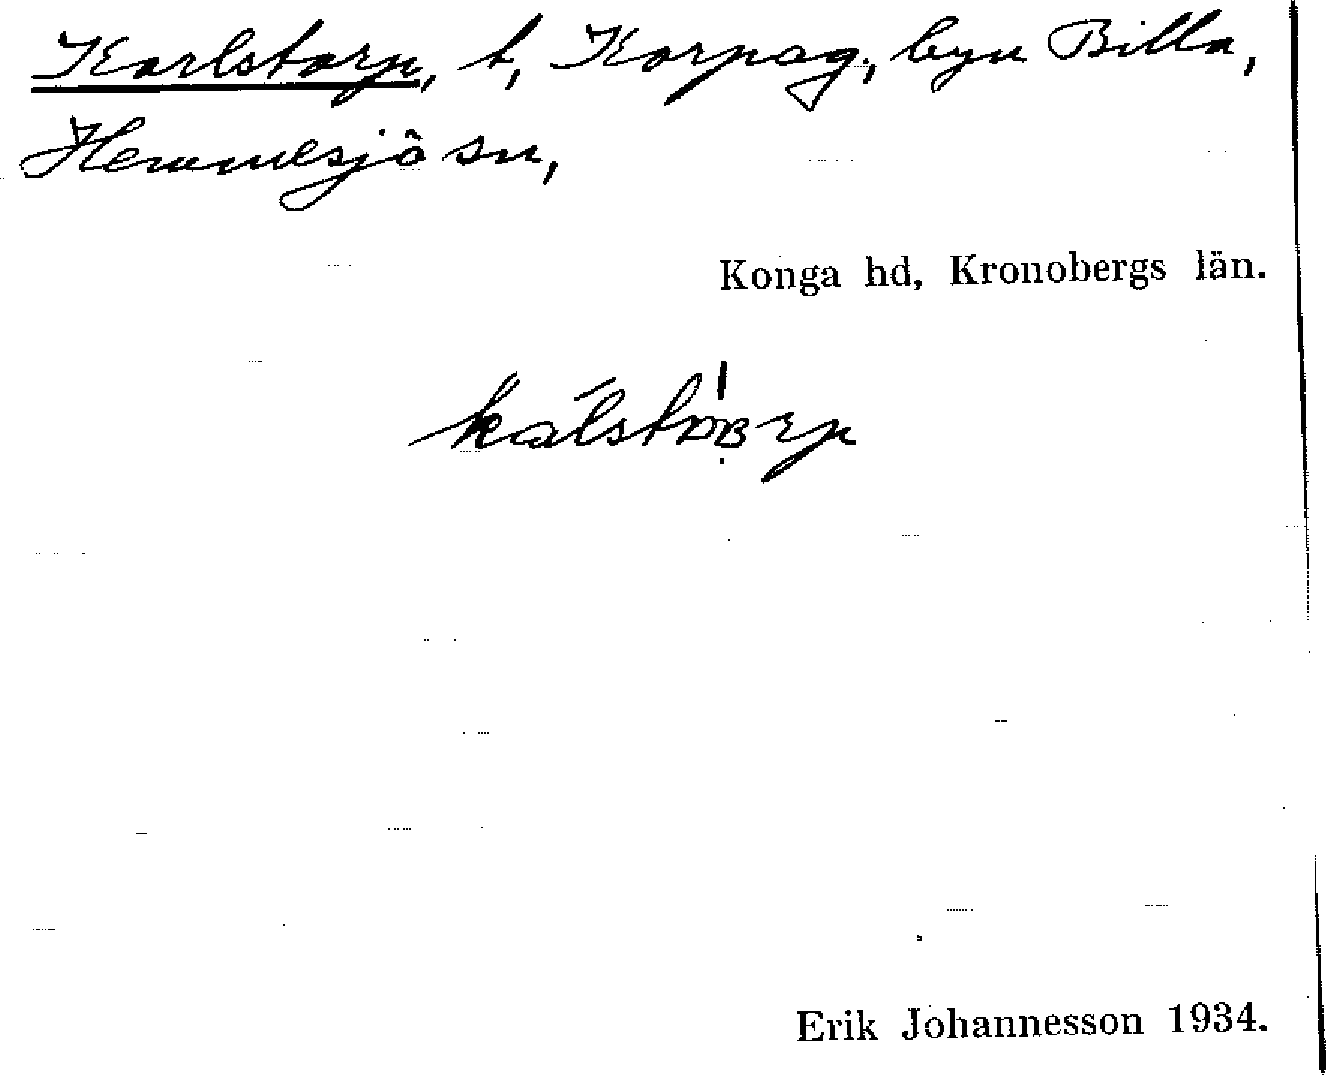 Karlstorp, t, Korpag., byn Billa,
Hemmesjö sn,
Konga hd, Kronobergs län.
Erik Johannesson 1934.